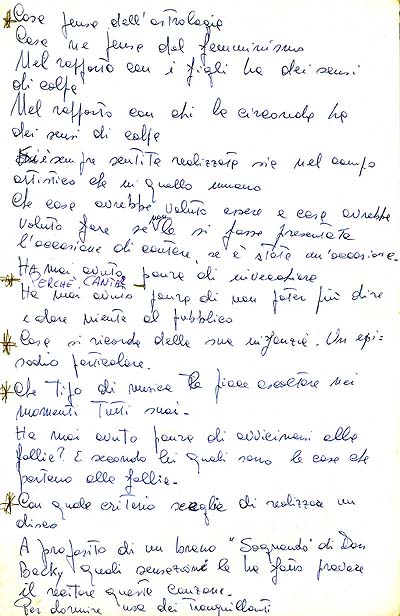 Cosa pensa dell'astrologia
Cosa ne pensa del femminismo
Nel rapporto con i figli ha dei sensi
di colpa
Nel rapporto con chi la circonda ha
dei sensi di colpa
Si è sempre sentita realizzata sia nel campo
artistico che in quello umano
Che cosa avrebbe voluto essere e cosa avrebbe
voluto fare se non le si fosse presentata
l'occasione di cantare, se è stata un'occasione.
Ha mai avuto paura di invecchiare
PERCHÈ CANTA?
Ha mai avuto paura di non poter più dire
e dare niente al pubblico
Cosa si ricorda della sua infanzia. Un epi-
sodio particolare.
Che tipo di musica le piace ascoltare nei
momenti tutti suoi.
Ha mai avuto paura di avvicinarsi alla
follia? E secondo lei quali sono le cose che
portano alla follia.
Con quale criterio sceglie di realizzare un
disco
A proposito di un brano "Sognando" di Don
Backy quali sensazioni le ha fatto provare
il recitare questa canzone.
Per dormire usa dei tranquillanti